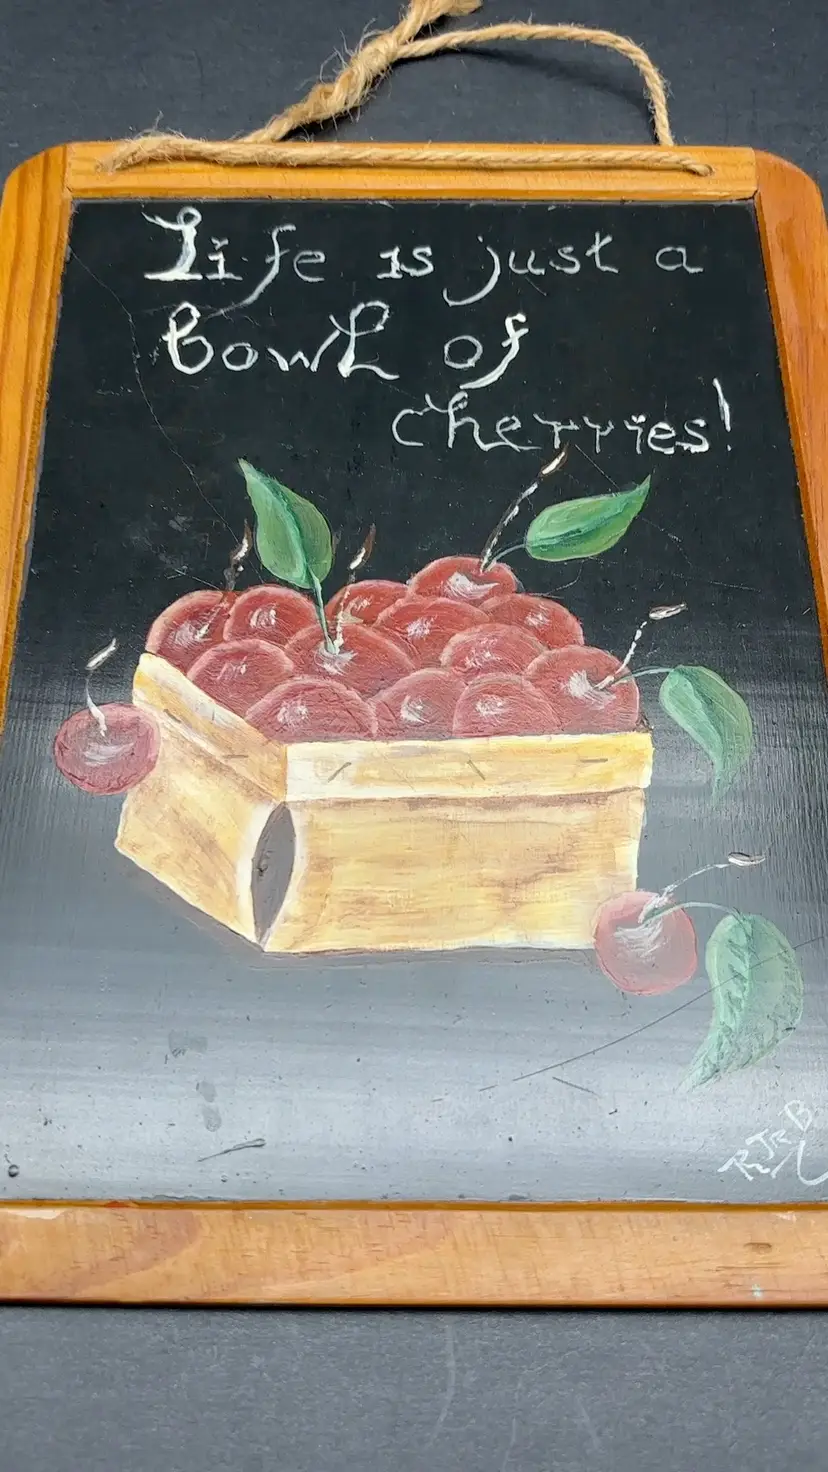 Life is just a
Bowl of
cherries!
RJRB